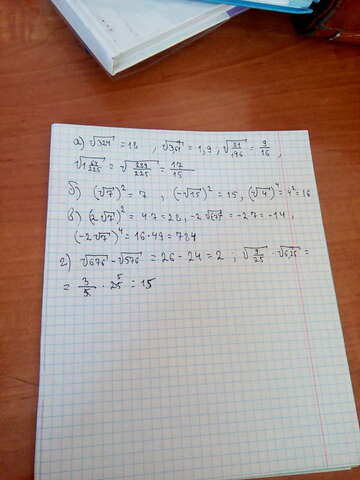 а) √324 = 18 , √361 = 1,9 , √81/196 = 9/16 ,
√1 64/225 = √289/225 = 17/15
б) (√7)² = 7 , (-√15)² = 15, (√4)⁴ = 4² = 16
в) (2√7)² = 4·7 = 28, -2√49 = -2·7 = -14,
(-2√7)⁴ = 16·49 = 784
г) √676 - √576 = 26 - 24 = 2 ; √9/25 · √625 =
= 3/5 · 25 5 = 15